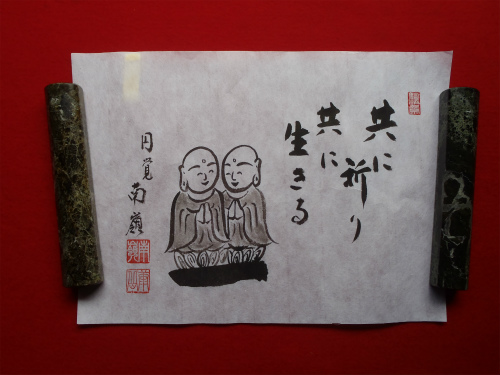 共に祈り
共に
生きる
円覚 南嶺